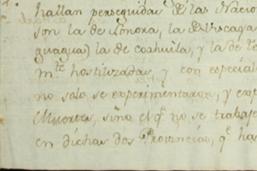 hallan perseguidas de las Nacio
son la de Sonora, la de Vscaya
guagua) la de coahuila, y la de
mte hostilizadas, y con especial
no solo se experimentaran, y
Muertes, sino el qe no se trabaje
en dichas dos Provincias, qe has